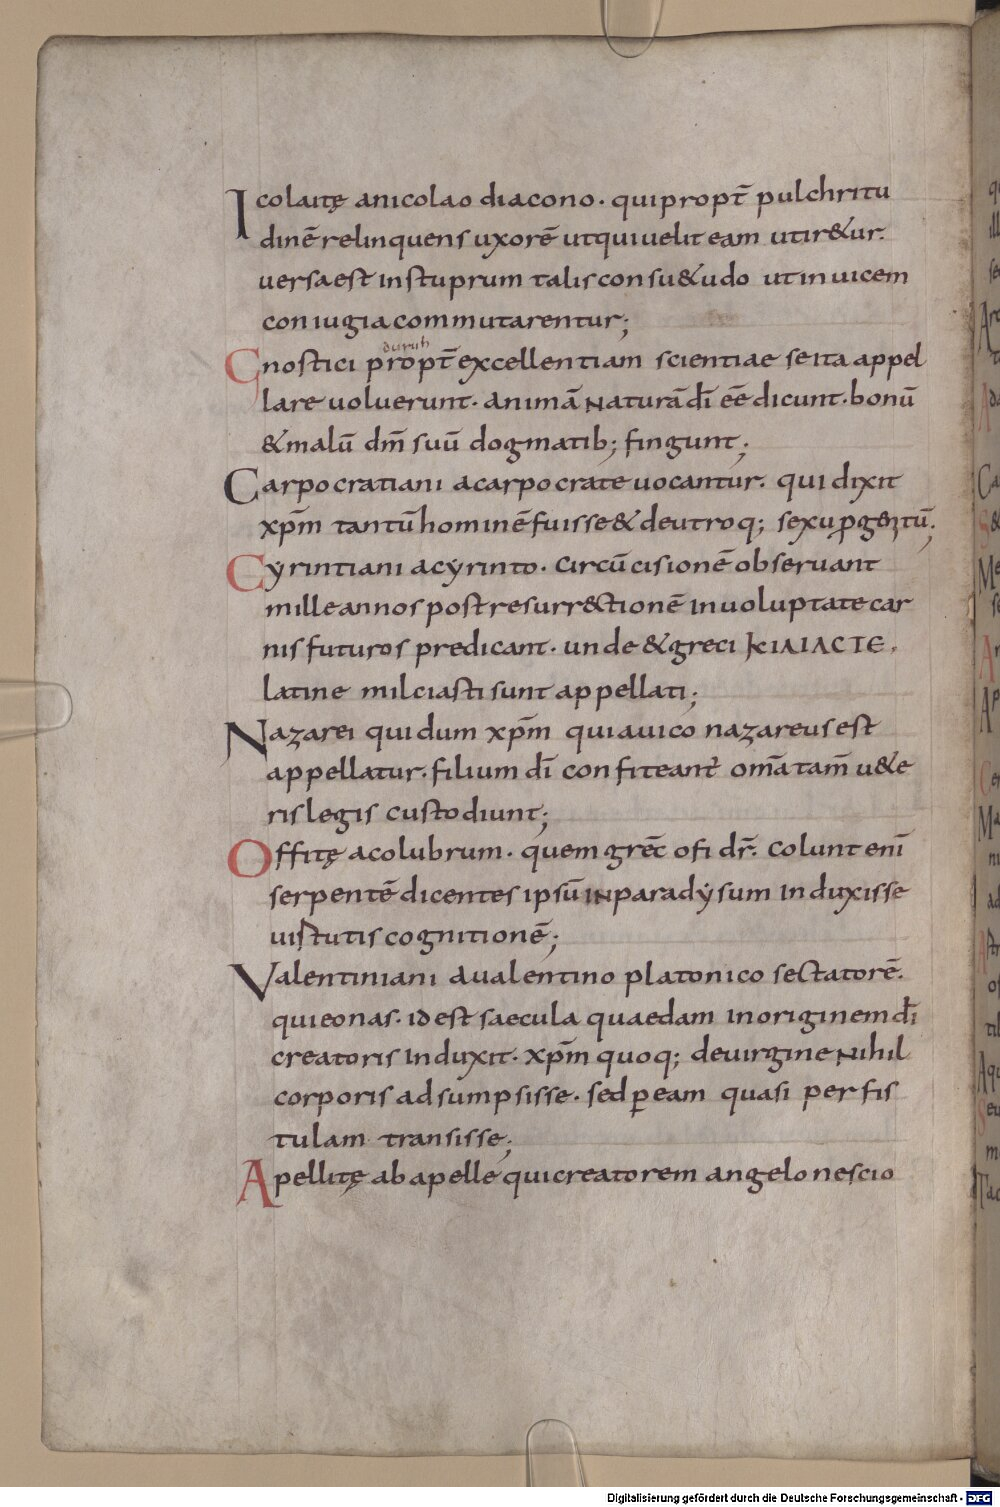 Icolaitę anicolao diacono. quipropt̄ pulchritu
dinē relinquens uxorē utquiuelit eam utir&ur.
uersaest instuprum talis consu&udo ut inuicem
coniugia commutarentur;
duruh
Gnostici propt̄ excellentiam scientiae se ita appel
lare uoluerunt. animā naturā dī eē dicunt. bonū
& malū dm̄ suū dogmatib; fingunt;
Carpocratiani acarpocrate uocantur. qui dixit
xp̄m tantū hominē fuisse & deutroq; sexu ꝑgenitū;
Cyrintiani acyrinto. circūcisionē obseruant
mille annos post resurr&tionē inuoluptate car
nis futuros predicant. unde & greci KIΛIΛCTE.
latine milciasti sunt appellati;
Nazarei qui dum xp̄m qui auico nazareus est
appellatur. filium dī confiteant̄ om̄a tam̄ u&e
ris legis custodiunt;
Offitę acolubrum. quem grēc ofi dr̄. Colunt enī
serpentē dicentes ipsū in paradysum induxisse
uistutis cognitionē;
Valentiniani aualentino platonico sectatorē.
quieonas. id est saecula quaedam inoriginem dī
creatoris induxit. xp̄m quoq; deuirgine nihil
corporis adsumpsisse. sed ꝑ eam quasi per fis
tulam transisse;
Apellitę ab apelle qui creatorem angelo nescio
Digitalisierung gefördert durch die Deutsche Forschungsgemeinschaft - DFG